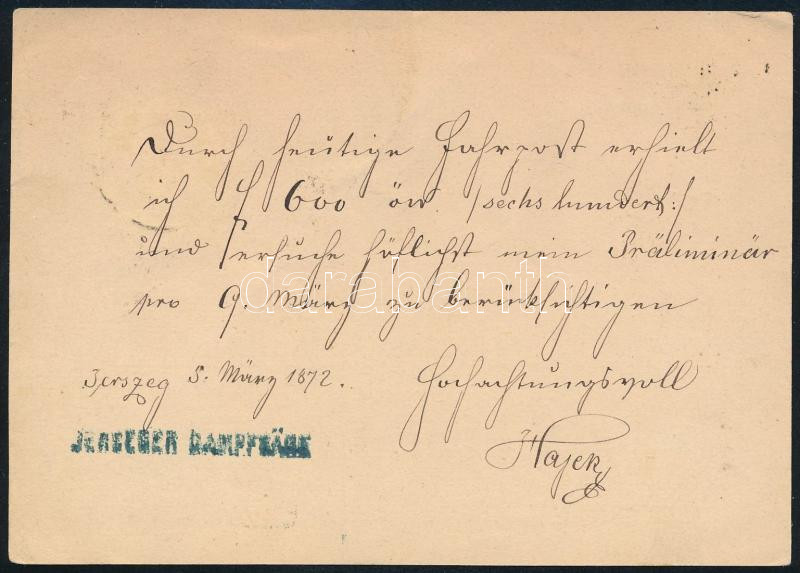 Durch heutige Fahrpost erhielt
ich f 600 öw /sechs hundert:/
und ersuche höflichst mein Präliminär
pro 9. März zu berücksichtigen
Zerszeg 5. März 1872. Hochachtungsvoll
Hajek
darabanth